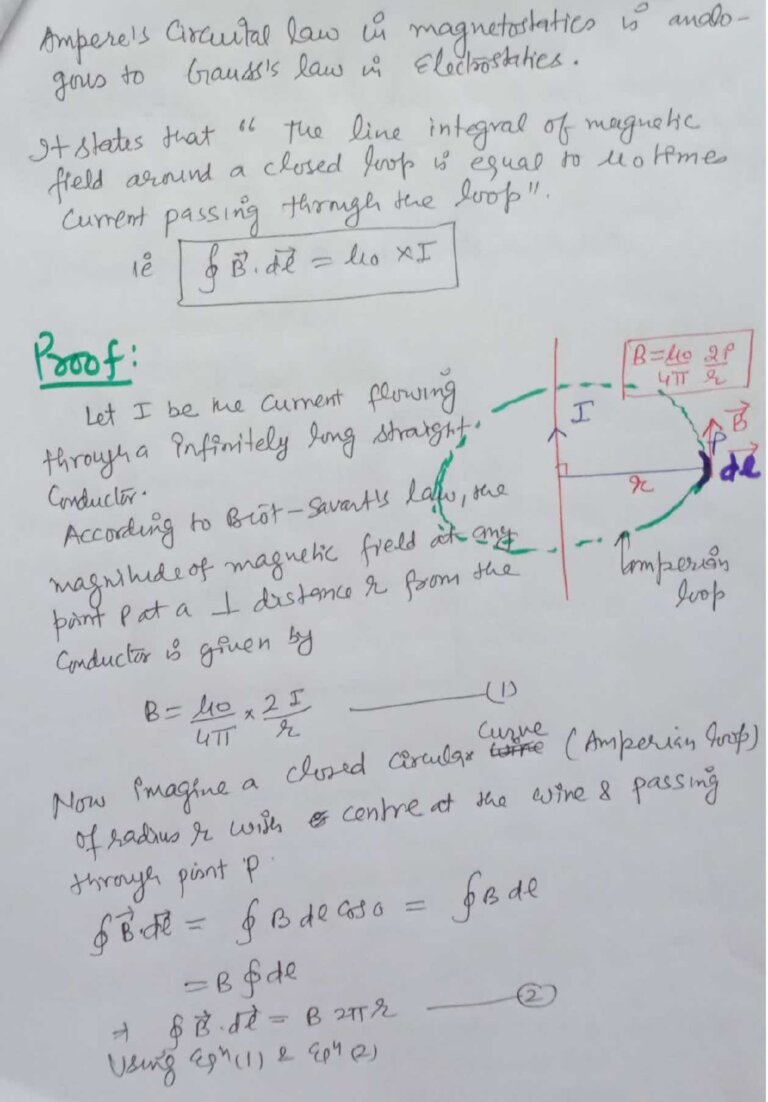 Ampere's Circuital law in magnetostatics is analo-
gous to Gauss's law in Electrostatics.
It states that " The line integral of magnetic
field around a closed loop is equal to μ0 times
Current passing through the loop".
ie ∮ B⃗.dl⃗ = μ0 × I
Proof:
B = μ0/4π 2P/r
I
B⃗
P
dl⃗
r
Amperian
loop
Let I be the current flowing
through a infinitely long straight
Conductor.
According to Biot-Savart's law, the
magnitude of magnetic field at any
point P at a ⊥ distance r from the
Conductor is given by
B = μ0/4π × 2I/r —— (1)
Now imagine a closed circular curve (Amperian loop)
of radius r with centre at the wire & passing
through point 'P
∮B⃗.dl⃗ = ∮ B dl Cos 0 = ∮B dl
= B ∮dl
⇒ ∮ B⃗.dl⃗ = B 2πr —— (2)
Using Eqⁿ (1) & Eqⁿ (2)